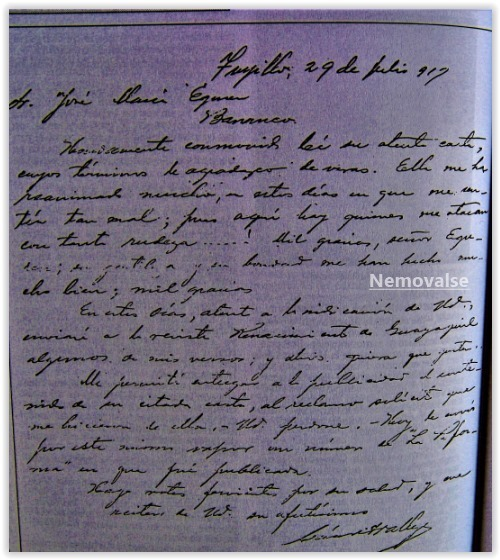 Trujillo, 29 de julio 917
Sr. José María Eguren
Barranco
Hondamente conmovido leí su atenta carta,
cuyos términos le agradezco de veras. Ella me ha
reanimado mucho, a estos días en que me sen-
tía tan mal; pues aquí hay quienes me atacan
con tanta rudeza.....! Mil gracias, señor Egu-
ren; su gentileza y su bondad me han hecho mu-
cho bien; mil gracias
En estos días, atento a la indicación de Ud.,
enviaré a la revista Renacimiento de Guayaquil
algunos de mis versos; y quiera que gusten.
Me permití entregar a la publicidad el conte-
nido de su citada carta, al reclamo solícito que
me hicieron de ella.- Ud. perdone.- Hoy le envío
por este mismo vapor un número de "La Refor-
ma" en que fué publicada.
Hago votos fervientes por su salud, y me
reitero de Ud. su afectísimo
César Vallejo
Nemovalse